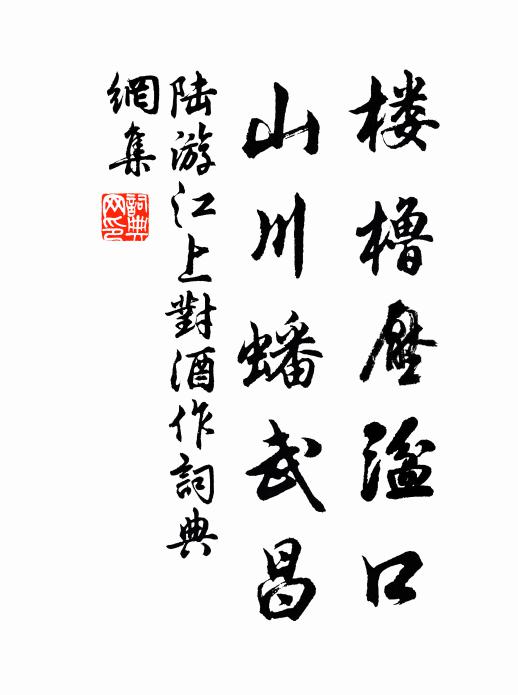 楼橹壓溢口
山川蟠武昌
陆游江上對酒作詞典
網集
詞典
网印